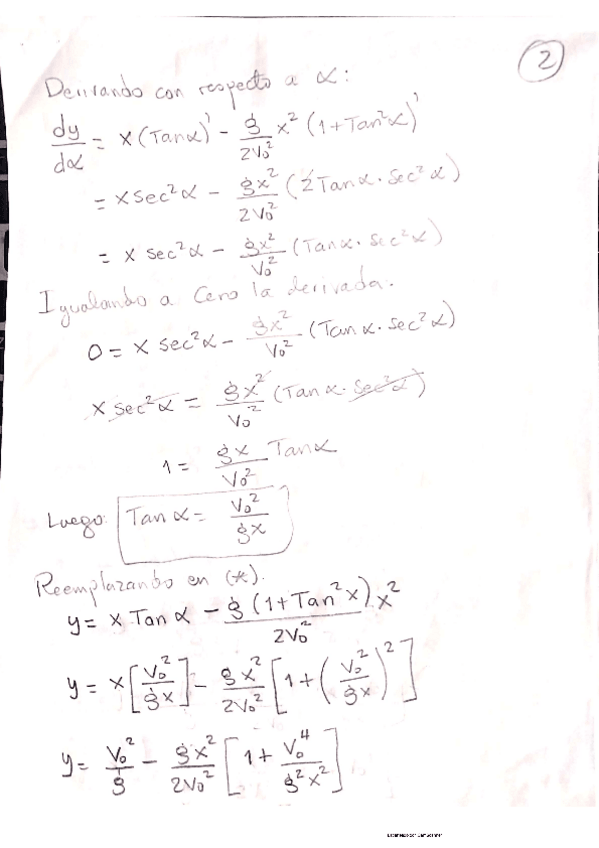 2
Derivando con respecto a α:
dy/dα = x(Tanα)' - g/2V₀² x² (1+Tan²α)'
= x Sec²α - gx²/2V₀² (2Tanα·Sec²α)
= x sec²α - gx²/V₀² (Tanα·Sec²α)
Igualando a Cero la derivada.
0 = x sec²α - gx²/V₀² (Tanα·Sec²α)
x sec²α = gx²/V₀² (Tanα·Sec²α)
1 = gx/V₀² Tanα
Luego: Tanα = V₀²/gx
Reemplazando en (*).
y = x Tanα - g(1+Tan²x)/2V₀² x²
y = x[V₀²/gx] - gx²/2V₀² [1+(V₀²/gx)²]
y = V₀²/g - gx²/2V₀² [1+V₀⁴/g²x²]